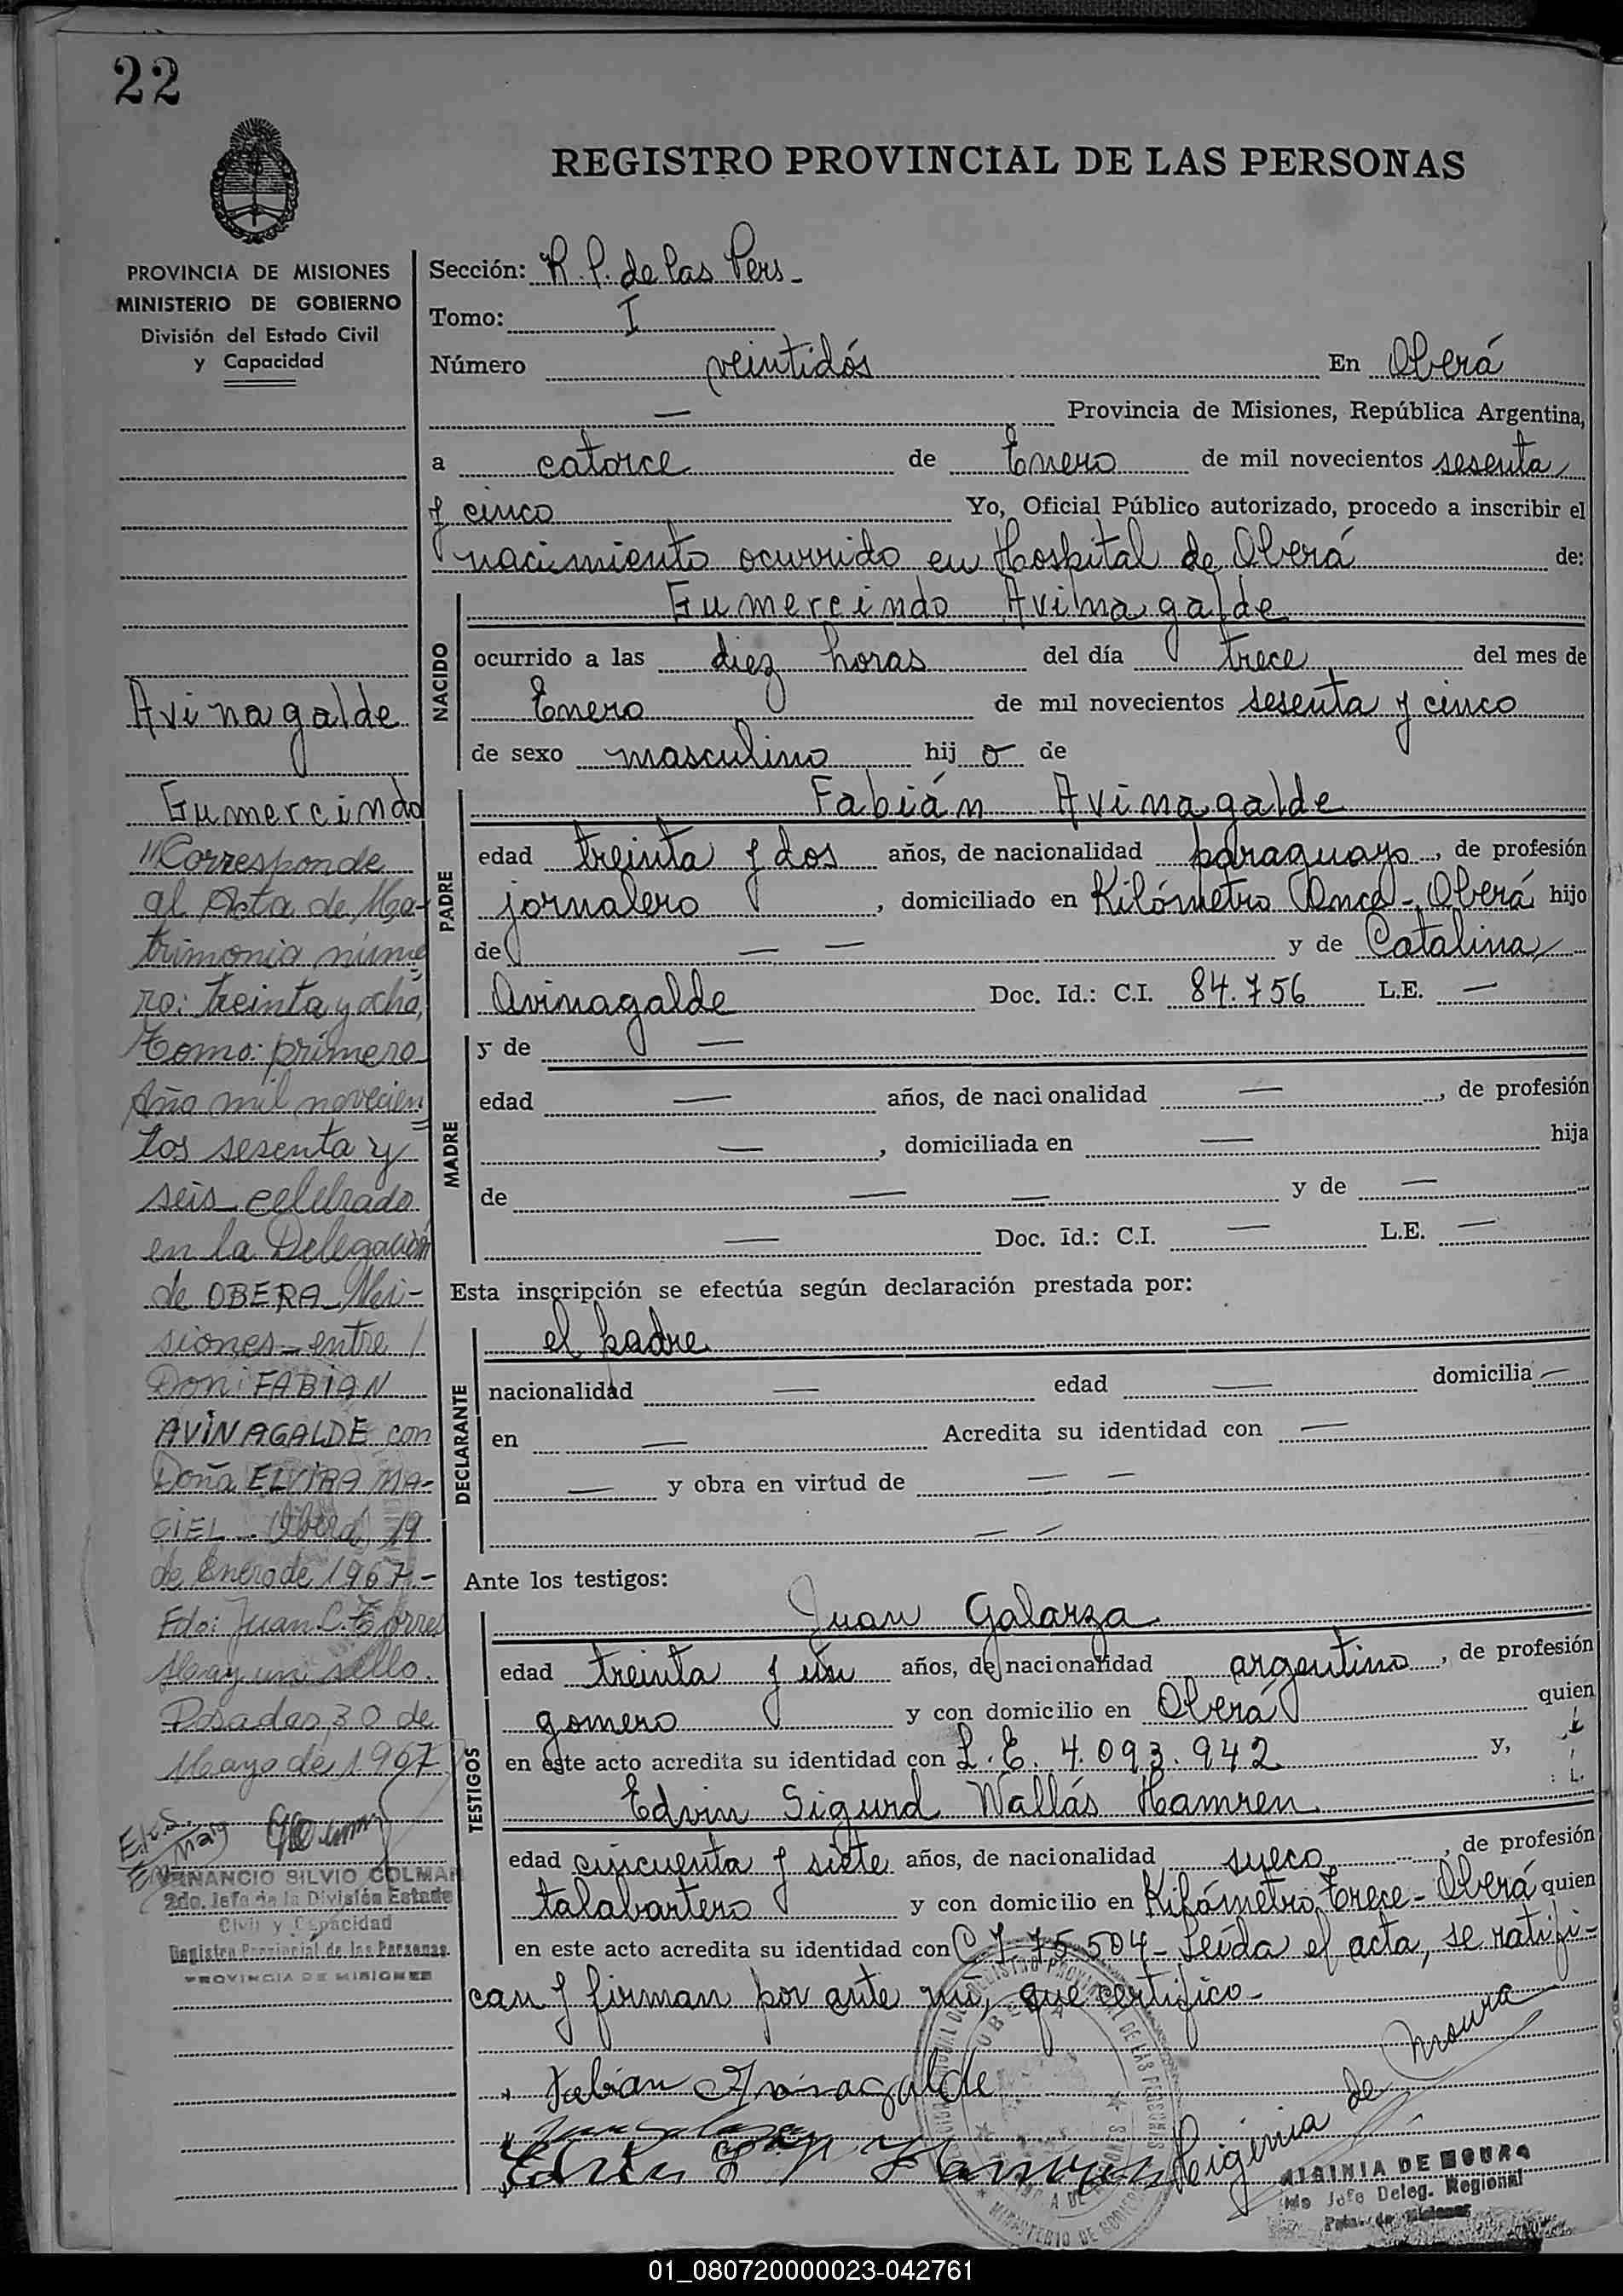 22
REGISTRO PROVINCIAL DE LAS PERSONAS
PROVINCIA DE MISIONES
MINISTERIO DE GOBIERNO
División del Estado Civil
y Capacidad
Avinagalde
Gumercindo
"Corresponde
al Acta de Ma-
trimonio núme
ro: treinta y ocho,
Tomo: primero
Año mil novecien
tos sesenta y
seis celebrado
en la Delegación
de OBERA Mi-
siones - entre /
Don: FABIAN
AVINAGALDE con
Doña ELVIRA MA-
CIEL - Oberá 19
de Enero de 1967.-
Fdo: Juan C. Torres
Hay un sello.
Posadas, 30 de
Mayo de 1967
VENANCIO SILVIO COLMAN
2do. Jefe de la División Estado
Civil y Capacidad
Registro Provincial de las Personas
PROVINCIA DE MISIONES
Sección: R. P. de las Pers -
Tomo: I
Número veintidós En Oberá
— Provincia de Misiones, República Argentina,
a catorce de Enero de mil novecientos sesenta
y cinco Yo, Oficial Público autorizado, procedo a inscribir el
nacimiento ocurrido en Hospital de Oberá de:
NACIDO
Gumercindo Avinagalde
ocurrido a las diez horas del día trece del mes de
Enero de mil novecientos sesenta y cinco
de sexo masculino hij o de
PADRE
Fabián Avinagalde
edad treinta y dos años, de nacionalidad paraguayo, de profesión
jornalero, domiciliado en Kilómetro Once - Oberá hijo
de — — y de Catalina
Avinagalde Doc. Id.: C.I. 84.756 L.E. —
MADRE
y de —
edad — años, de nacionalidad —, de profesión
—, domiciliada en — hija
de — — y de —
— Doc. Id.: C.I. — L.E. —
Esta inscripción se efectúa según declaración prestada por:
DECLARANTE
el padre
nacionalidad — edad — domicilia —
en — Acredita su identidad con —
— y obra en virtud de — —
— —
Ante los testigos:
TESTIGOS
Juan Galarza
edad treinta y un años, de nacionalidad argentino, de profesión
gomero y con domicilio en Oberá quien
en este acto acredita su identidad con L. E. 4.093.942 y,
Edvin Sigurd Wallás Hamren
edad cincuenta y siete años, de nacionalidad sueco, de profesión
talabartero y con domicilio en Kilómetro Trece - Oberá quien
en este acto acredita su identidad con C I 75.504 - Leída el acta, se ratifi-
can y firman por ante mí, que certifico -
Fabian Avinagalde
Higinia de Moura
HIGINIA DE MOURA
Jefe Deleg. Regional
01_080720000023-042761